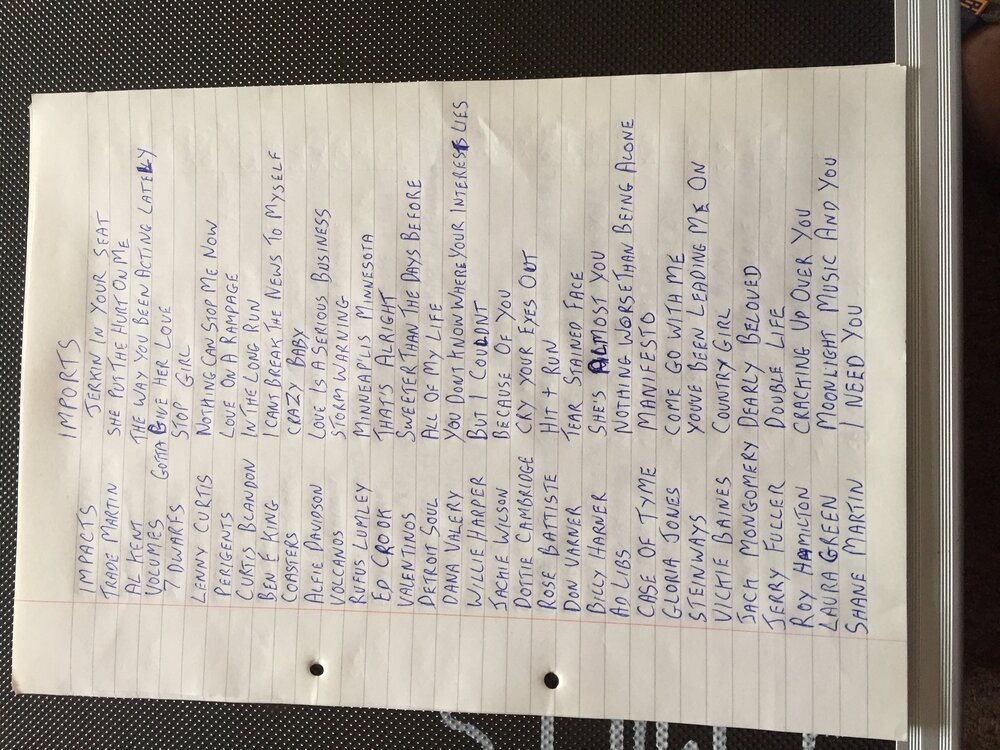 IMPORTS
IMPACTS JERKIN IN YOUR SEAT
TRADE MARTIN SHE PUT THE HURT ON ME
AL KENT THE WAY YOU BEEN ACTING LATELY
VOLUMES GOTTA GIVE HER LOVE
7 DWARFS STOP GIRL
LENNY CURTIS NOTHING CAN STOP ME NOW
PERIGENTS LOVE ON A RAMPAGE
CURTIS BLANDON IN THE LONG RUN
BEN E KING I CANT BREAK THE NEWS TO MYSELF
COASTERS CRAZY BABY
ALFIE DAVIDSON LOVE IS A SERIOUS BUSINESS
VOLCANOS STORM WARNING
RUFUS LUMLEY MINNEAPLIS MINNESOTA
ED CROOK THAT'S ALRIGHT
VALENTINOS SWEETER THAN THE DAYS BEFORE
DETROIT SOUL ALL OF MY LIFE
DANA VALERY YOU DONT KNOW WHERE YOUR INTEREST LIES
WILLIE HARPER BUT I COULDNT
JACKIE WILSON BECAUSE OF YOU
DOTTIE CAMBRIDGE CRY YOUR EYES OUT
ROSE BATTISTE HIT + RUN
DON VARNER TEAR STAINED FACE
BILLY HARNER SHE'S ALMOST YOU
AD LIBS NOTHING WORSE THAN BEING ALONE
CASE OF TYME MANIFESTO
GLORIA JONES COME GO WITH ME
STEINWAYS YOUVE BEEN LEADING ME ON
VICKIE BAINES COUNTRY GIRL
JACK MONGOMERY DEARLY BELOVED
JERRY FULLER DOUBLE LIFE
ROY HAMILTON CRACKING UP OVER YOU
LAURA GREEN MOONLIGHT MUSIC AND YOU
SHANE MARTIN I NEED YOU